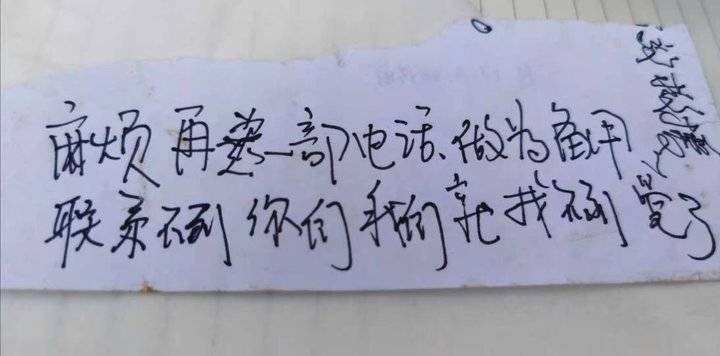 麻烦再卖一部电话、做为备用
联系不到你们我们就找不到
了